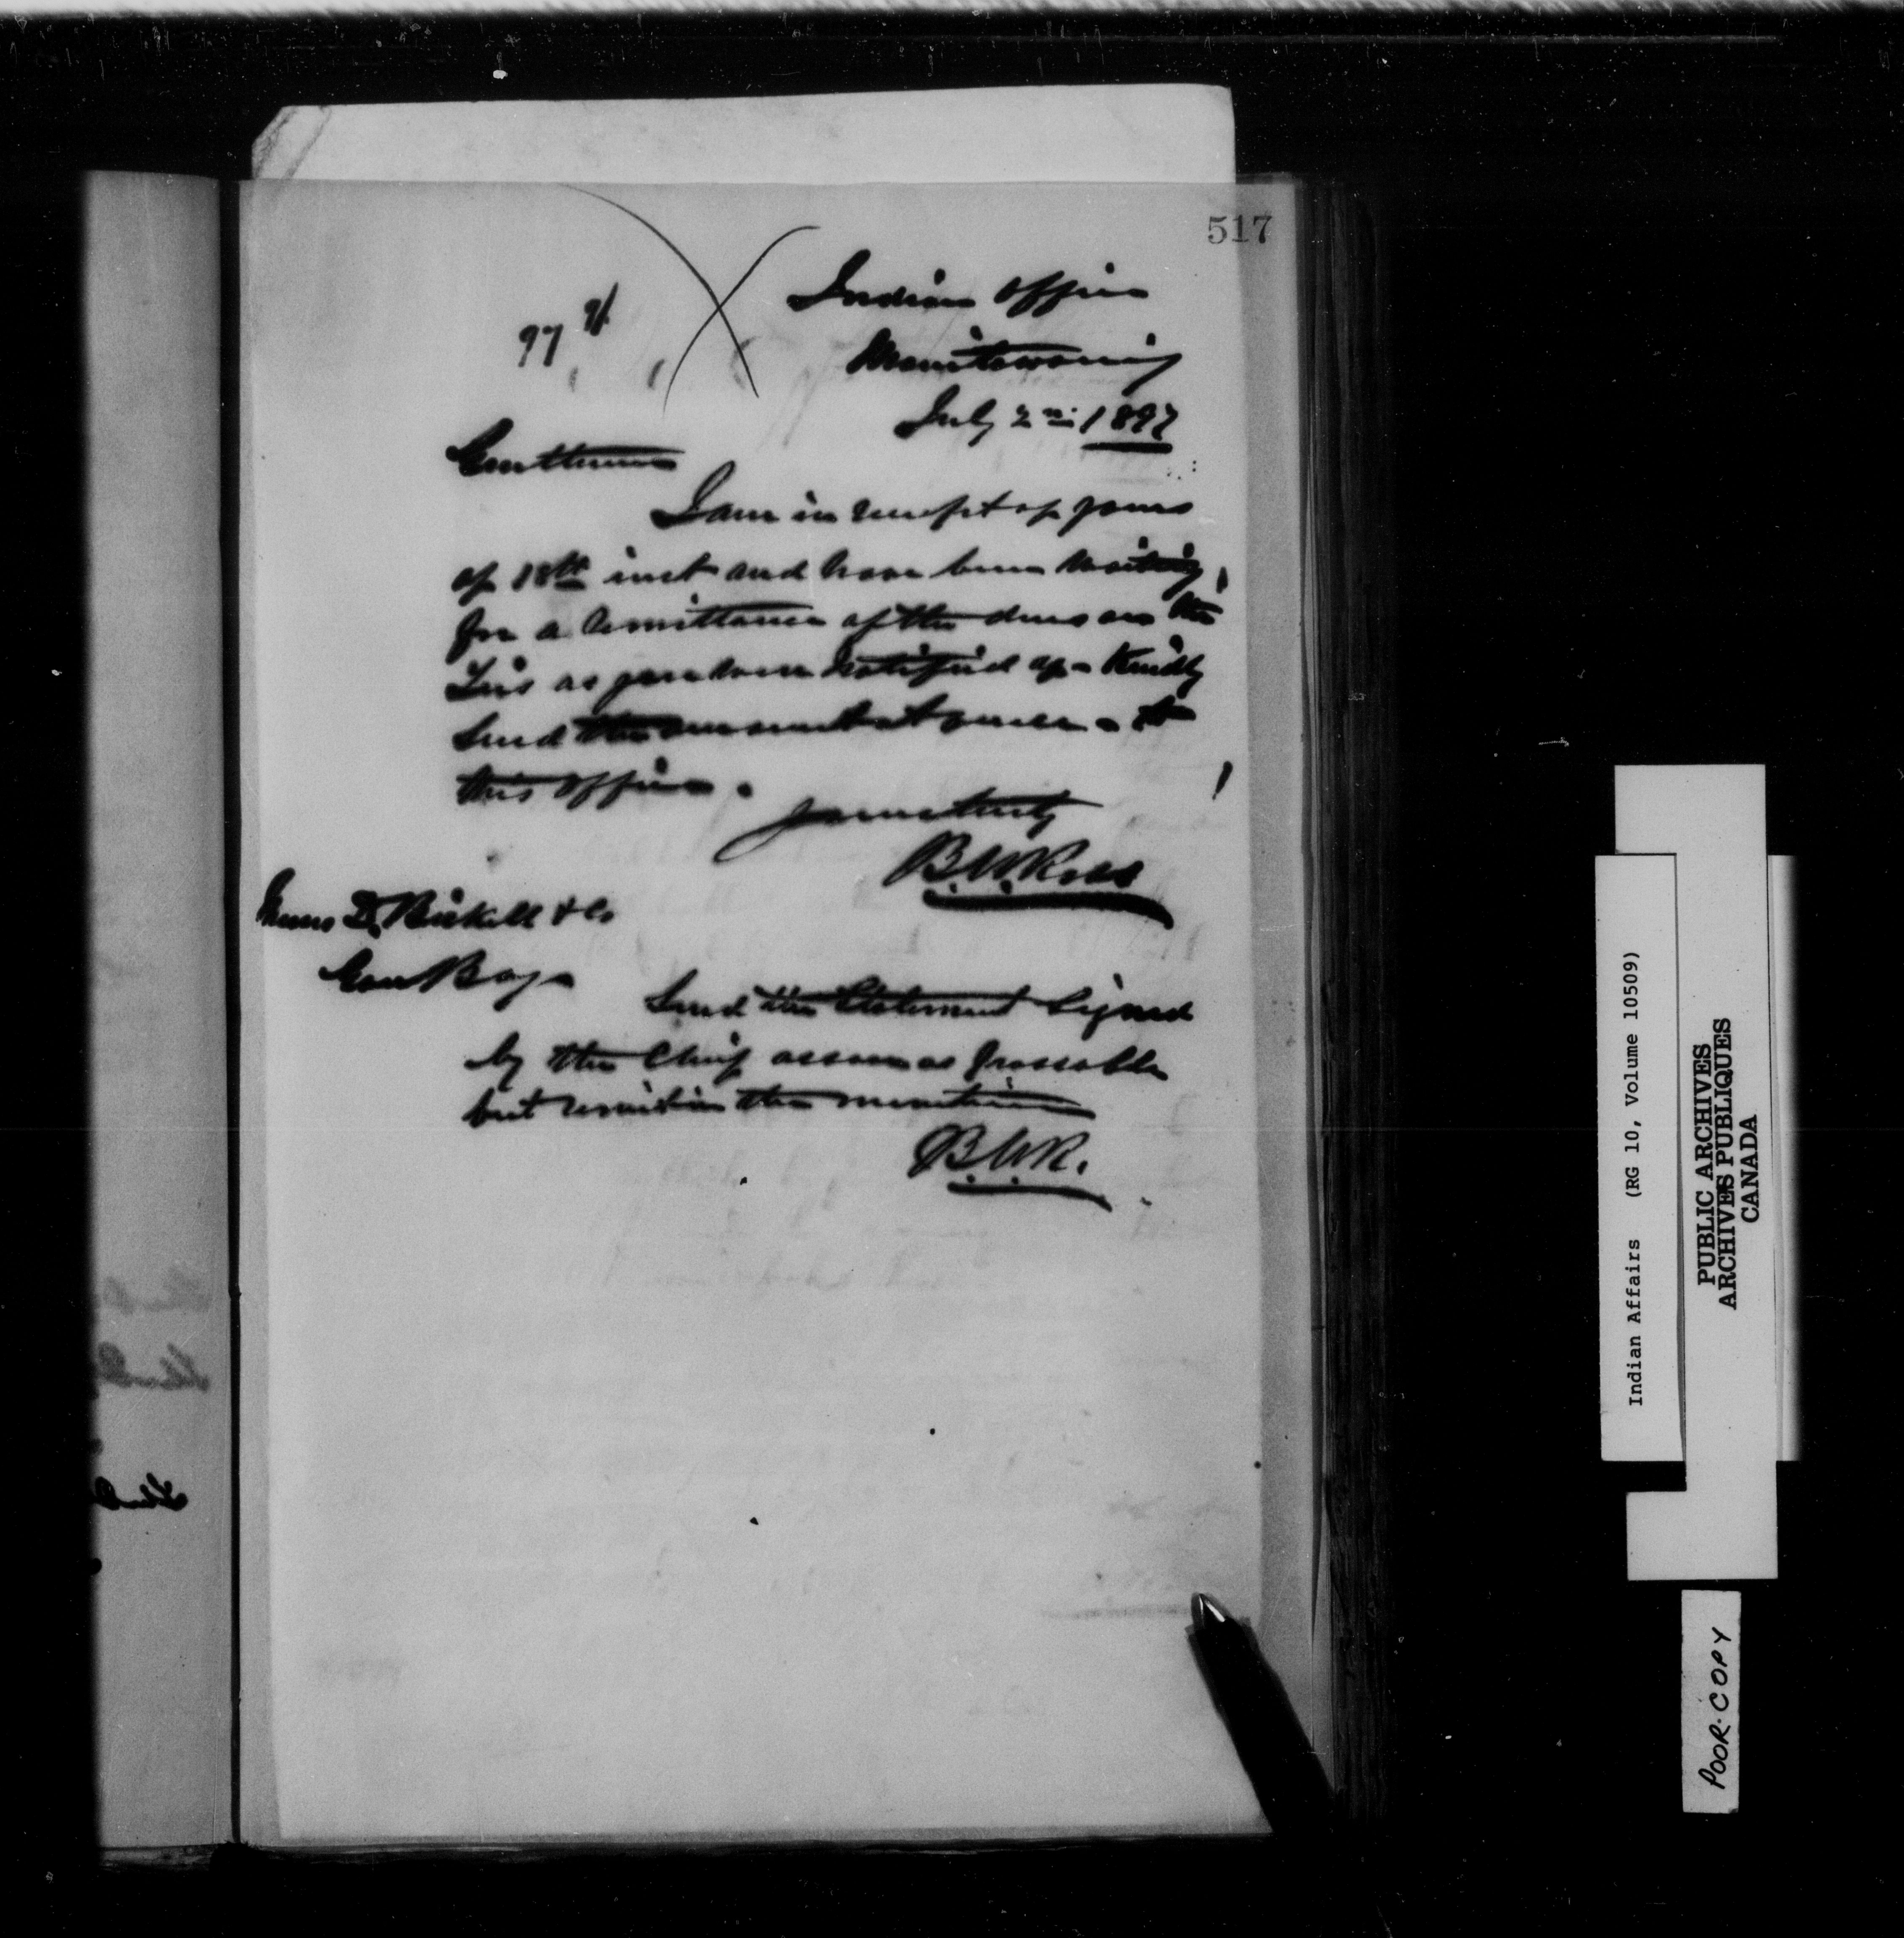 517
97
Indian Office
Manitowaning
July 2nd 1897
Gentlemen
I am in receipt of yours
of 18th inst and have been waiting
for a remittance of the dues on the
Ties as you were notified of - Kindly
send the amount at once - to
this office.
Yours truly
B.W. Ross
Messrs D. Bickell & Co
Gore Bay
Send the Statement signed
by the Chief as soon as possible
but remit in the meantime
B.W.R.
Indian Affairs (RG 10, Volume 10509)
PUBLIC ARCHIVES
ARCHIVES PUBLIQUES
CANADA
POOR COPY